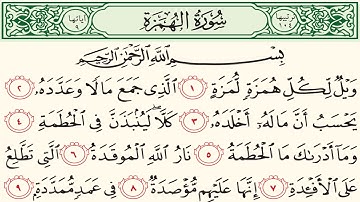 ترتيبها ١٠٤ سُورَةُ الهُمَزَةِ آياتها ٩
بِسْمِ اللَّهِ الرَّحْمَٰنِ الرَّحِيمِ
وَيْلٌ لِّكُلِّ هُمَزَةٍ لُّمَزَةٍ ١ الَّذِي جَمَعَ مَالًا وَعَدَّدَهُ ٢
يَحْسَبُ أَنَّ مَالَهُ أَخْلَدَهُ ٣ كَلَّا لَيُنبَذَنَّ فِي الْحُطَمَةِ ٤
وَمَا أَدْرَاكَ مَا الْحُطَمَةُ ٥ نَارُ اللَّهِ الْمُوقَدَةُ ٦ الَّتِي تَطَّلِعُ
عَلَى الْأَفْئِدَةِ ٧ إِنَّهَا عَلَيْهِم مُّؤْصَدَةٌ ٨ فِي عَمَدٍ مُّمَدَّدَةٍ ٩